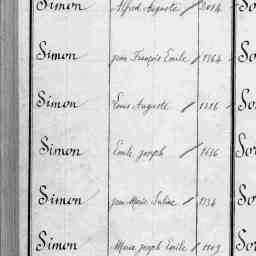 Simon Alfred Auguste 2014 So
Simon Jean François Emile 1364 So
Simon Louis Auguste 1316 So
Simon Emile Joseph 1656 Sor
Simon Jean Marie 1734 So
Simon Marie Joseph Emile 1109 So